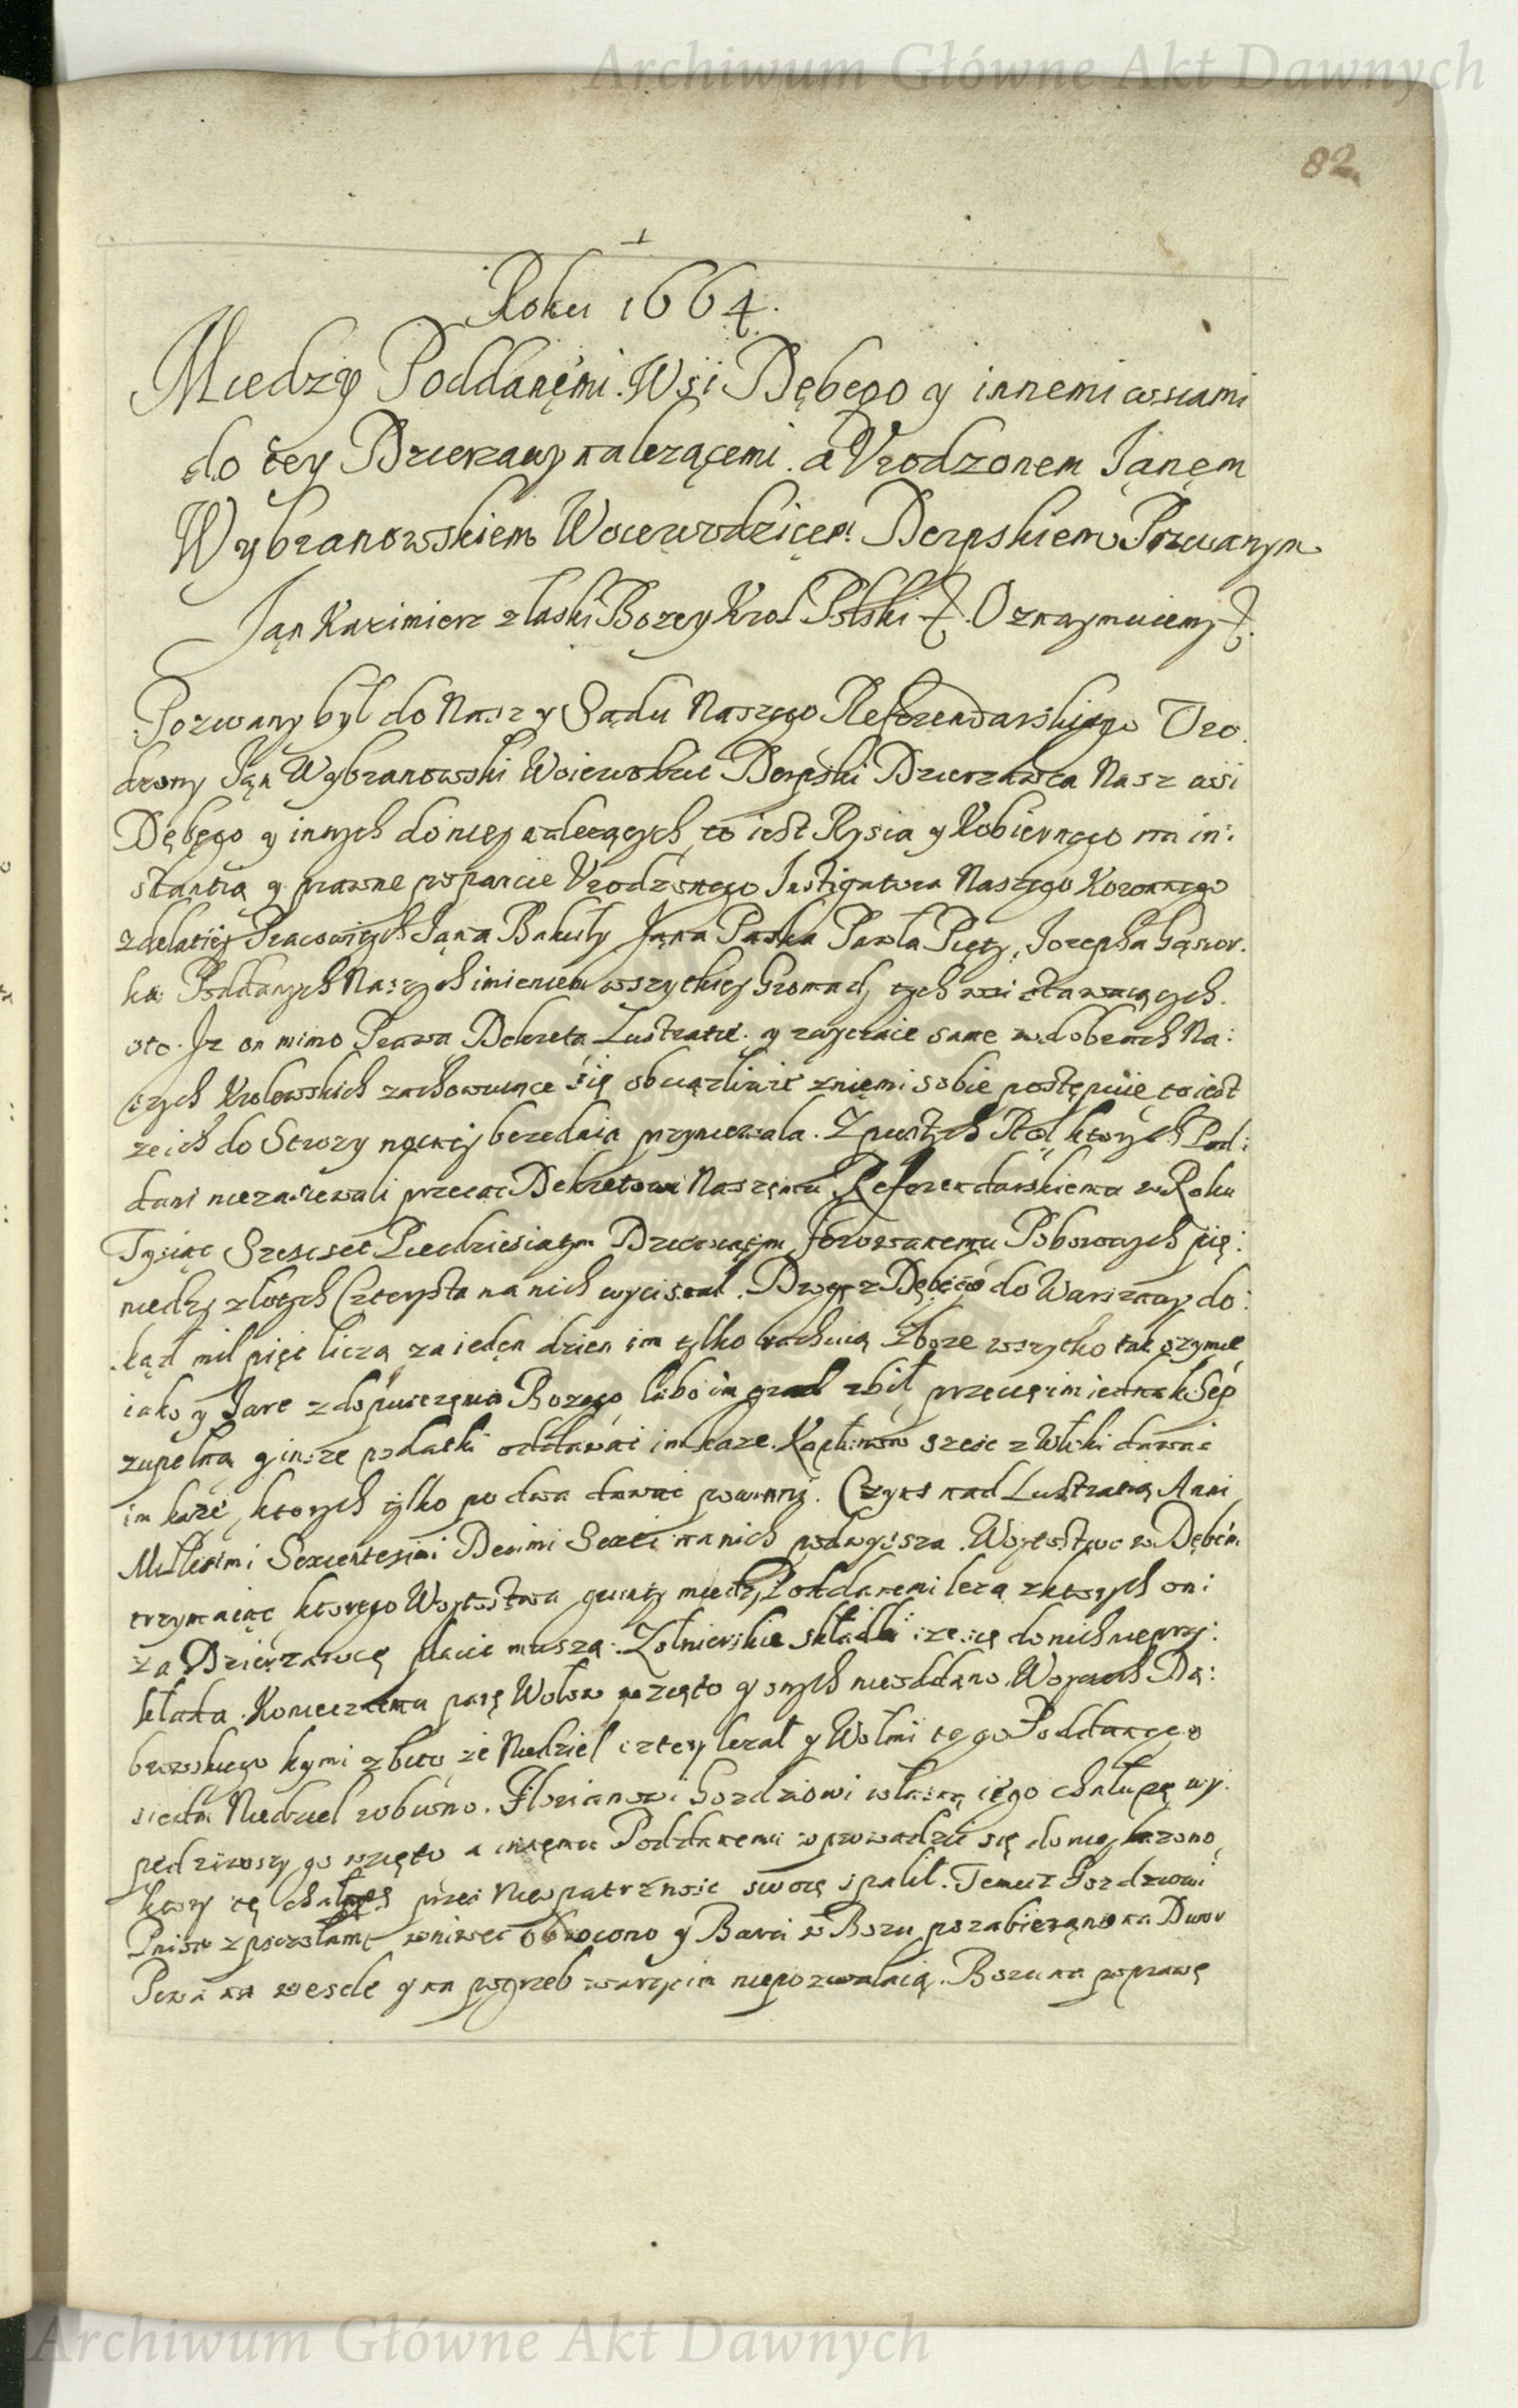 Archiwum Główne Akt Dawnych
82
Roku 1664.
Miedzy Poddanęmi Wsi Dębego y innemi wsiami
do tey Dzierzawy nalezącemi a Vrodzonem Janęm
Wybranowskiem Woiewodzicem Derpskiem Pozwanym
Jan Kazimierz z łaski Bozey Krol Polski Oznaymuiemy
Pozwany był do Nas y Sądu Naszego Referendarskiego Vro:
dzony Jan Wybranowski Woiewodzic Derpski Dzierzawca Nasz wsi
Dębego y innych do niey nalezących to iest Rysia y Kobiernego na in:
stantią y prawne wsparcie Vrodzonego Instigatora Naszego Koronnego
z delatiey Pracowitych Jana Bakuły Jana Paska Pawła Pięty, Jozepha Gąsior:
ka Poddanych Naszych imieniem wszytkiey Gromady tych wsi stawaiących.
oto. Jz on mimo Prawa Dekreta Lustratie y zwyczaie same w dobrach Na:
szych Krolewskich zachowuiące się obciązliwie z niemi sobie postępuie to iest
ze ich do Strozy nocney bezednia przyniewala. Z pustych Rol, ktorych Pod:
dani niezasiewali przeciw Dekretowi Naszęmu Referendarskiemu w Roku
Tysiąc Szescset Piedziesiatym Dziewiątym ferowanemu Poborowych pię:
niedzy złotych Czterysta na nich wyciskal. Drogę z Dębego do Warszawy do:
kąd mil pięć liczą za ieden dzien im tylko rachuią Zboze wszytko tak ozyme
iako y Jare z dopuszczęnia Bozego lubo im grad zbił, przecię im iednak Sep
zupełną y insze podatki oddawać im kaze. Kapłonow szesc z Włoki dawać
im kaze, ktorych tylko po dwa dawac powinni. Czynsz nad Lustratią Anni
Millesimi Sexcentesimi Decimi Sexti na nich podwyzsza. Woytostwo w Dębem
trzymaiąc ktorego Woytostwa grunty miedzy Poddanemi lezą z ktorych oni
za Dzierzawcę płacic muszą. Zołnierskie składki ze się do nich nie przy:
kłada. Koniecznemu parę Wołow wzięto y onych nieoddano. Woyciech Dą:
browskiego kymi zbito ze Niedziel cztery lezał y Wołmi tego Poddanego
siedm Niedziel robiono. Florianowi Gozdziowi własną iego chałupę wy:
pędziwszy go wzięto a innęmu Poddanemu wprowadzić się do niey kazono,
ktory tę chałupę przez Nieopatrznosc swoię spalił. Temuz Gozdziowi
Pniow z pszczołami wniwec obrocono y Barci w Boru pozabierano na Dwor
Piwa na wesele y na pogrzeb warzyc im niepozwalaią. Boru na poprawę
Archiwum Główne Akt Dawnych